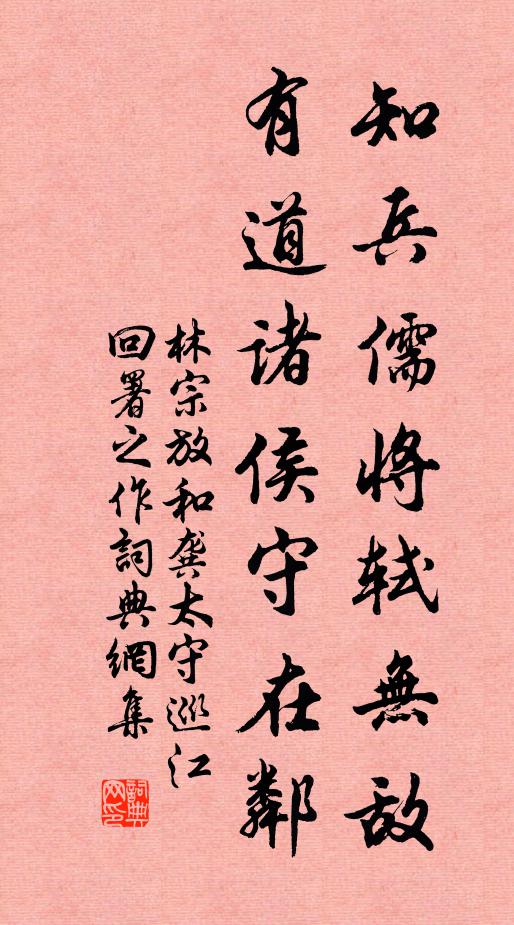 知兵儒將軾無敵
有道諸侯守在鄰
林宗放和龔太守巡江
回署之作詞典網集
詞典网印